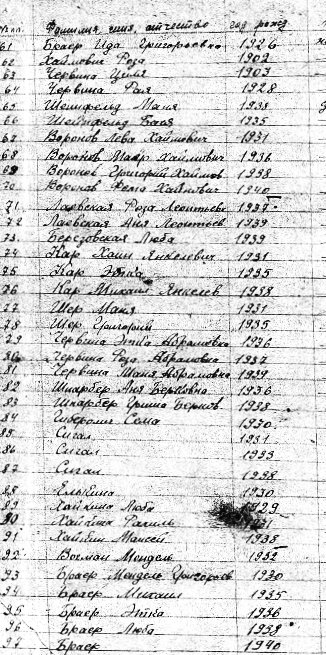 № п.п. Фамилия, имя, отчество год рожд.
61 Браер Ида Григорьевна 1926
62 Хаймович Роза 1902
63 Червина Циля 1903
64 Червина Рая 1928
65 Шейнфельд Маня 1938
66 Шейнфельд Баня 1935
67 Воронов Лева Хаймович 1931
68 Воронов Маер Хаймович 1936
69 Воронов Григорий Хаймов 1938
70 Воронов Фема Хаймович 1940
71 Лаевская Роза Леонтьевн 1937
72 Лаевская Аня Леонтьев 1939
73 Березовская Люба 1939
74 Кар Хаим Янкелевич 1931
75 Кар Этка 1935
76 Кар Михаил Янкелев 1938
77 Шер Маня 1931
78 Шер Григорий 1935
79 Червина Этка Абрамовна 1936
80 Червина Роза Абрамовна 1937
81 Червина Маня Абрамовна 1939
82 Шкарбер Аня Берковна 1936
83 Шкарбер Гриша Берков 1938
84 Сема 1930
85 Сигал 1931
86 Сигал 1933
87 Сигал 1938
88 Елькина 1930
89 Хайкина Люба 1929
90 Хайкина Рахиль 1931
91 Хайкин Моисей 1938
92 Вогман Мендель 1932
93 Браер Мендель Григорьев 1930
94 Браер Михаил 1935
95 Браер Этка 1936
96 Браер Люба 1938
97 Браер 1940